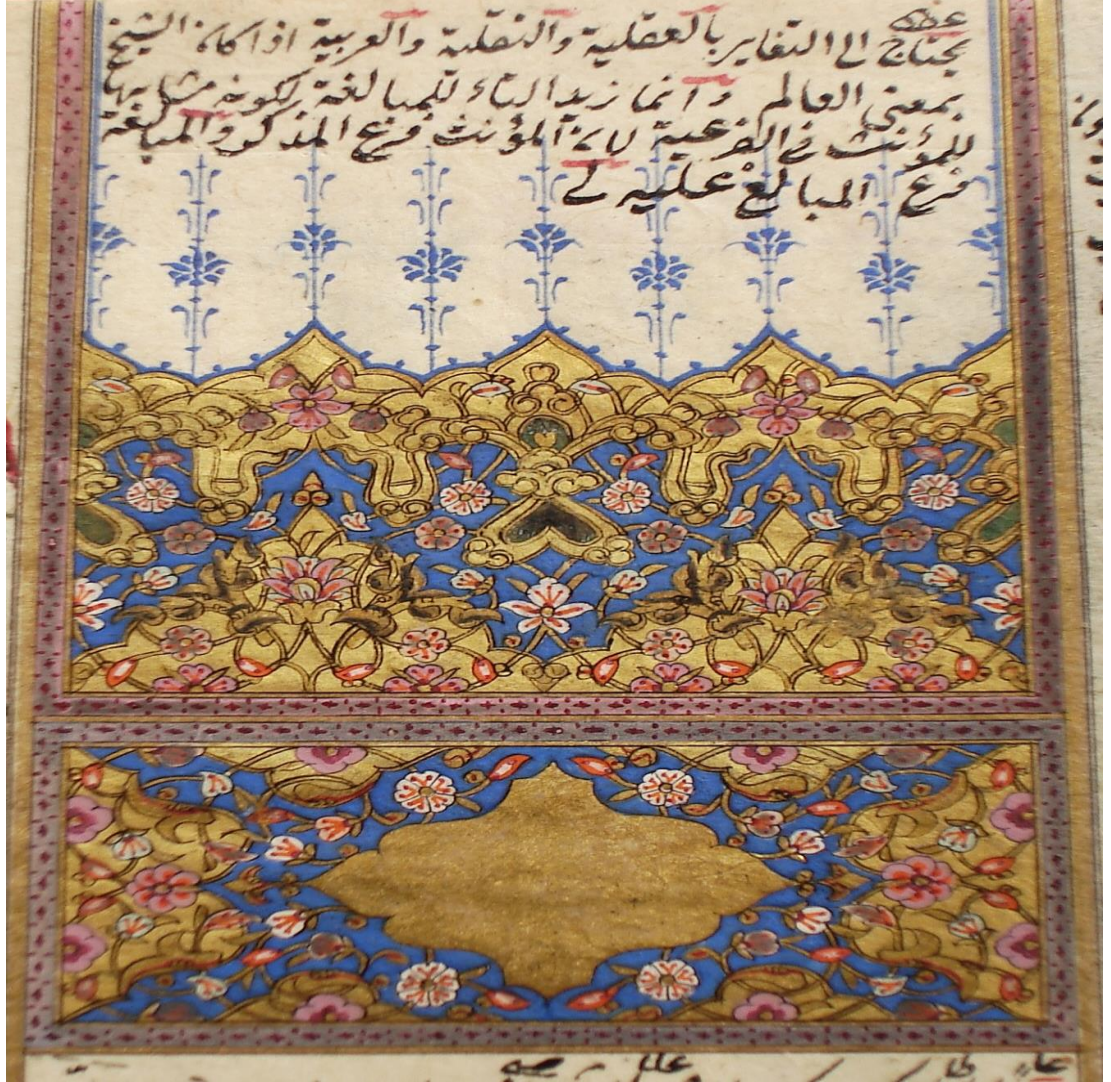 يحتاج الى التغاير بالعقلية والنقلية والعربية اذا كان الشيخ
بمعنى العالم وانما زيد التاء للمبالغة لكونه مشابها
للمؤنث في الفرعية لان المؤنث فرع المذكر والمبالغة
فرع المبالغ عليه